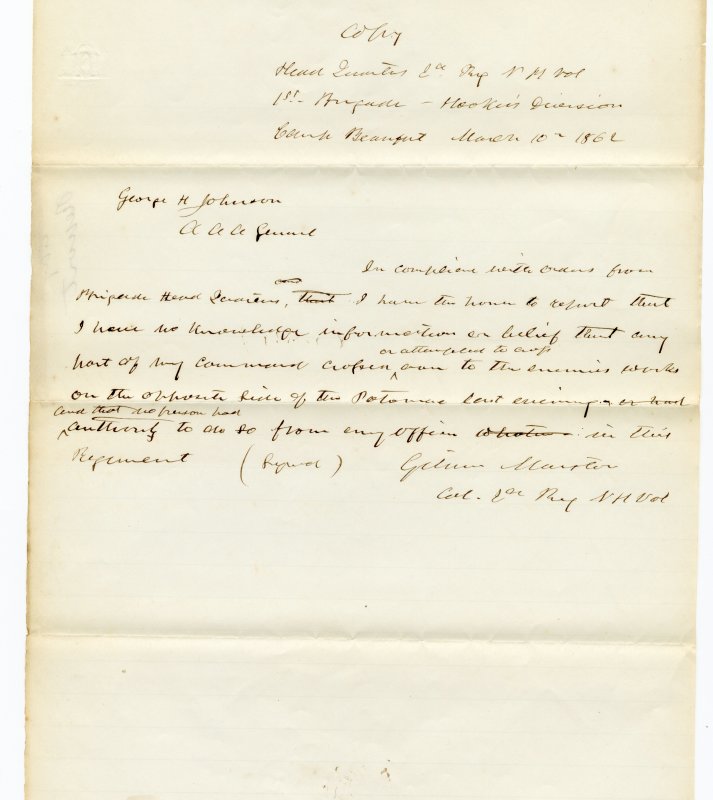 Copy
Head Quarters 2d Reg N H Vol
1st Brigade - Hookers Division
Camp Beaufort March 10th 1862
George H Johnson
A A A General
In compliance with orders from
Brigade Head Quarters, that I have the honor to report that
I have no knowledge information or belief that any
part of my command crossed over to the enemies works
or attempted to cross
on the opposite side of the Potomac last evening or had
and that no person had
authority to do so from any officer whatever in this
Regiment (Signed) Gilman Marston
Col. 2d Reg N H Vol